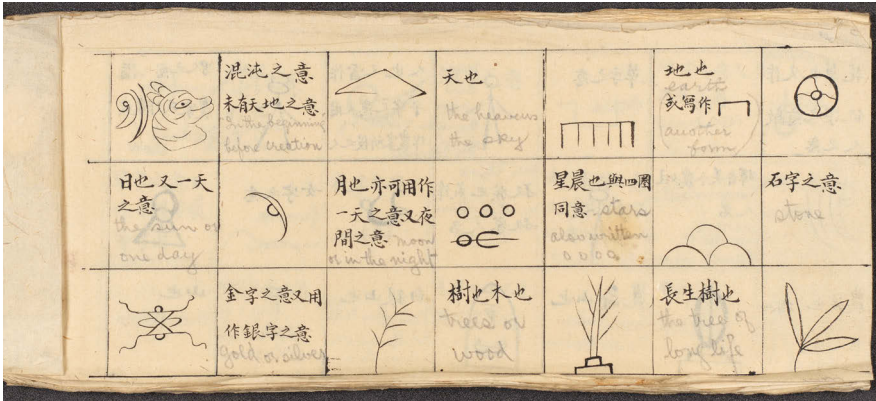 混沌之意
未有天地之意
In the beginning
before creation
天也
the heavens
the sky
地也
earth
或寫作
another
form
日也又一天
之意
the sun or
one day
月也亦可用作
一天之意又夜
間之意 moon
or in the night
星晨也與四圈
同意 stars
also written
0000
石字之意
stone
金字之意又用
作銀字之意
gold or silver
樹也木也
trees or
wood
長生樹也
the tree of
long life